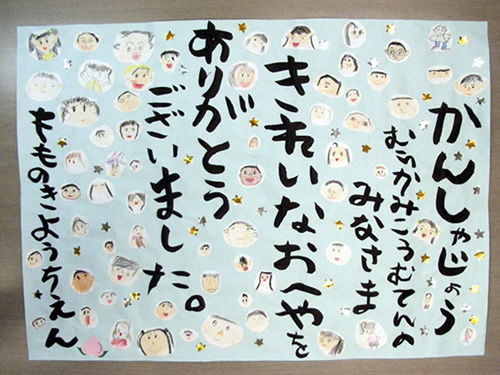 かんしゃじょう
むらかみこうむてんの
みなさま
きれいなおへやを
ありがとう
ございました。
もものきようちえん